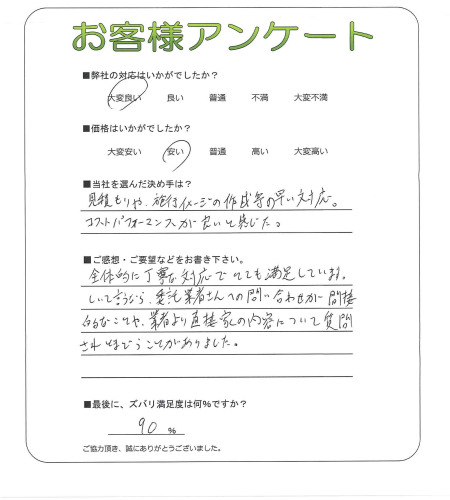 お客様アンケート
■弊社の対応はいかがでしたか？
大変良い 良い 普通 不満 大変不満
■価格はいかがでしたか？
大変安い 安い 普通 高い 大変高い
■当社を選んだ決め手は？
見積もりや、施行イメージの作成等の早い対応。
コストパフォーマンスが良いと感じた。
■ご感想・ご要望などをお書き下さい。
全体的に丁寧な対応でとても満足しています。
しいて言うなら、委託業者さんへの問い合わせが間接
的なことや、業者より直接家の内容について質問
され とまどうことがありました。
■最後に、ズバリ満足度は何％ですか？
90 ％
ご協力頂き、誠にありがとうございました。